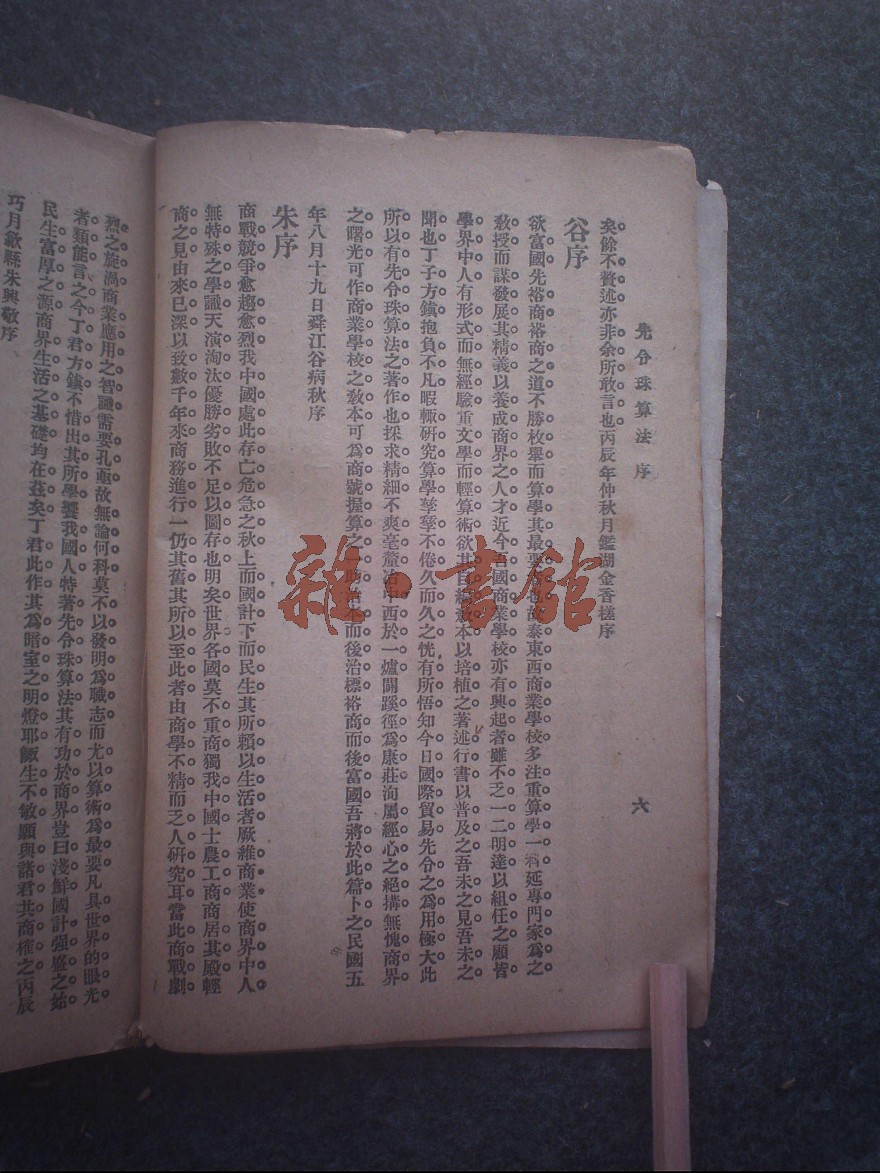 先令珠算法 序
六
矣餘不贅述亦非余所敢言也丙辰年仲秋月鑑湖金香槎序
谷序
欲富國先裕商裕商之道不勝枚舉而算學其最要者也故泰東西商業學校多注重算學一科延專門家爲之
教授而謀發展其精義以養成商界之人才近今吾國商業學校亦有興起者雖不乏一二明達以組任之顧皆
學界中人有形式而無經驗重文學而輕算術欲其自編教本以培植之著述行書以普及之吾未之見吾未之
聞也丁子方鎮抱負不凡暇輙硏究算學孳孳不倦久而久之恍有所悟知今日國際貿易先令之爲用極大此
所以有先令珠算法之著作也採求精細不爽毫釐冶中西於一爐闢蹊徑爲康莊洵屬經心之絕搆無愧商界
之曙光可作商業學校之教本可爲商號握算之一助治本而後治標裕商而後富國吾將於此篇卜之民國五
年八月十九日舜江谷病秋序
朱序
商戰競爭愈趨愈烈我中國處此存亡危急之秋上而國計下而民生其所賴以生活者厥維商業使商界中人
無特殊之學識天演淘汰優勝劣敗不足以圖存也明矣世界各國莫不重商獨我中國士農工商商居其殿輕
商之見由來已深以致數千年來商務進行一仍其舊其所以至此者由商學不精而乏人硏究耳當此商戰劇
烈之旋渦商業應用之智識需要孔亟故無論何科莫不以發明爲職志而尤以算術爲最要凡具世界的眼光
者類能言之今丁君方鎮不惜出其所學饗我國人特著先令珠算法其有功於商界豈曰淺鮮國計强盛之始
民生富厚之源商界生活之基礎均在茲矣丁君此作其爲暗室之明燈耶飯生不敏願與諸君共商榷之丙辰
巧月歙縣朱興敬序
雜·書館